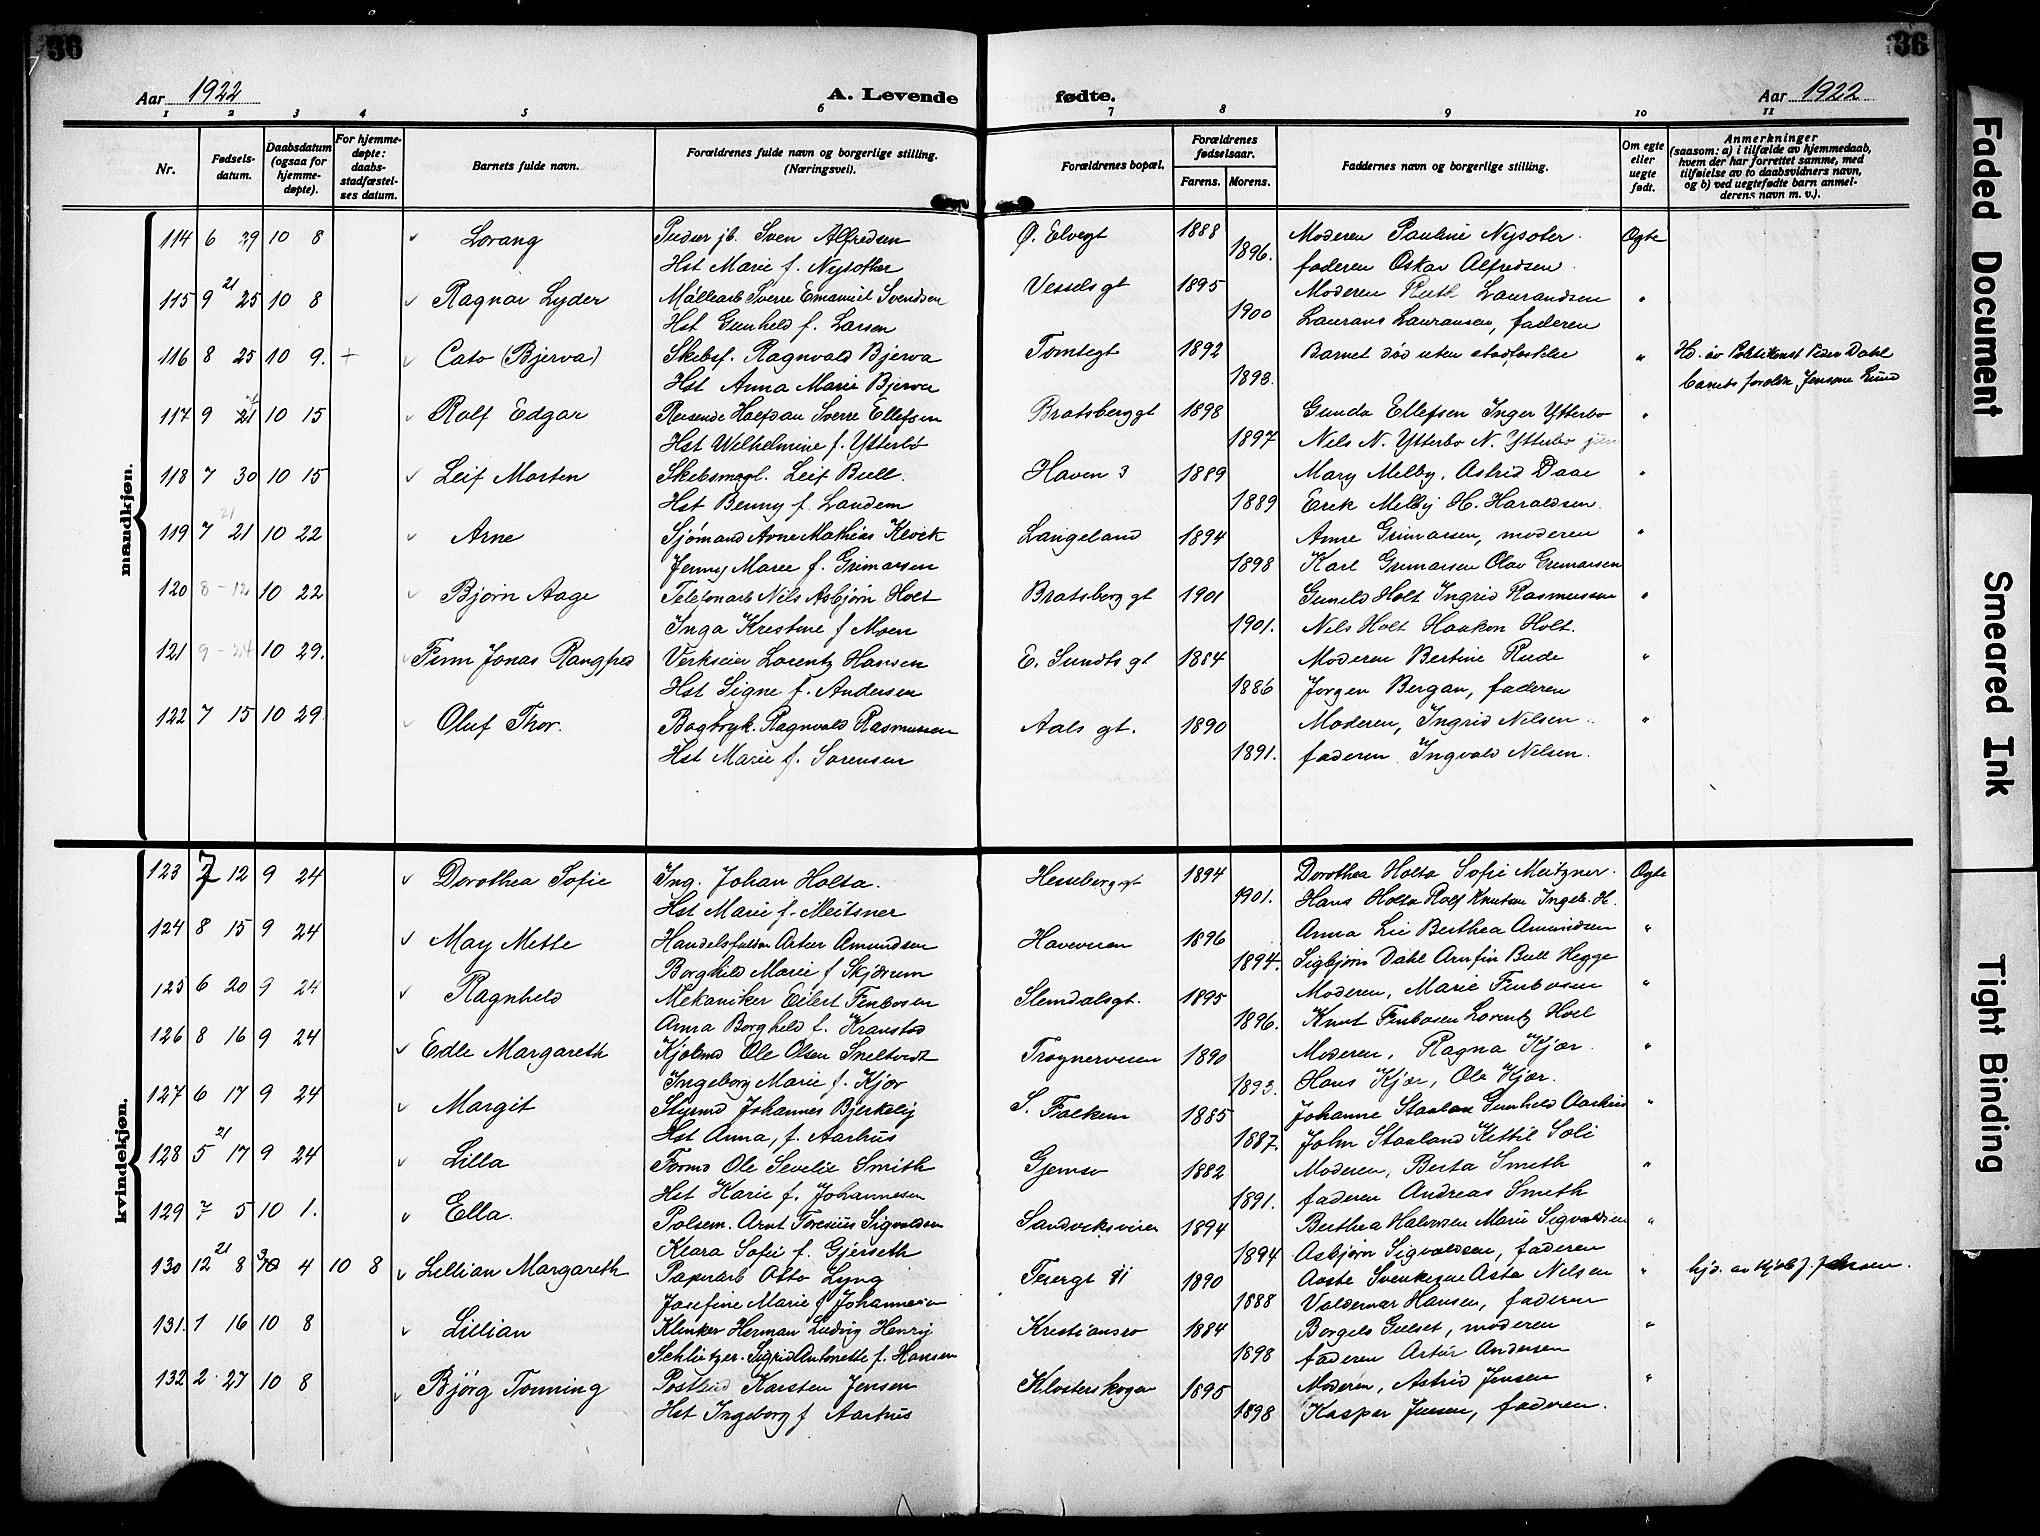 36
36
Aar 1922
A. Levende fødte.
Aar 1922
1 2 3 4 5 6 7 8 9 10 11
Nr.
Fødsels-
datum.
Daabsdatum
(ogsaa for
hjemme-
døpte).
For hjemme-
døpte:
daabs-
stadfæstel-
ses datum.
Barnets fulde navn.
Forældrenes fulde navn og borgerlige stilling.
(Næringsvei).
Forældrenes bopæl.
Forældrenes
fødselsaar.
Farens. Morens.
Faddernes navn og borgerlige stilling.
Om egte
eller
uegte
født.
Anmerkninger
(saasom: a) i tilfælde av hjemmedaab,
hvem der har forrettet samme, med
tilføielse av to daabsvidners navn,
og b) ved uegtefødte barn anmel-
derens navn m. v.).
mandkjøn.
114 6 29 10 8 Lorang Pudser jb. Sven Alfredsen Ø. Elvegt 1888 Moderen Pauline Nysoter. Ogte
Hst Marie f. Nysother 1896. faderen Oskar Alfredsen.
115 9 21 25 10 8 Ragnar Lyder Møllearb Sverre Emanuel Svendsen Vesselsgt 1895 Moderen Ruth Laurandsen "
Hst Gunhild f. Larsen 1900 Laurans Lauransen, faderen
116 8 25 10 9. + Cato (Bjerva) Skibsf. Ragnvald Bjerva Tomtegt 1892 Barnet død uten stadfestelse " Hd. av Politikonst Peder Dahl
Hst Anna Marie Bjerva 1893. barnets foreldre, Jensine Lund
117 9 21 10 15 Rolf Edgar Reisende Halfdan Sverre Ellefsen Bratsberggt 1898 Gunda Ellefsen Inger Ytterbo "
Hst Wilhelmine f. Ytterbø 1897 Nils N. Ytterbo N. Ytterbo jun
118 7 30 10 15 Leif Morten Skibsmegl. Leif Bull. Haven 3 1889 Mary Melby, Astrid Daae "
Hst Benny f. Landem 1889 Erik Melby H. Haraldsen.
119 7 21 21 10 22 Arne Sjømand Arne Mathias Klock Langeland 1894 Anne Grimarsen, moderen "
Jenny Marie f. Grimarsen 1898 Karl Grimarsen Olav Grimarsen
120 8 - 12 10 22 Bjørn Aage Telefonarb Nils Asbjørn Holt Bratsberggt 1901 Gunild Holt Ingrid Rasmussen "
Inga Kristine f Moen 1901. Nils Holt Haakon Holt.
121 9 - 24 10 29. Finn Jonas Rangfred Verkseier Lorentz Hansen E. Sundts gt 1884 Moderen Bertine Rude "
Hst Signe f. Andersen 1886 Jørgen Bergan, faderen
122 7 15 10 29. Oluf Thor. Bogtryk. Ragnvald Rasmussen Aals gt. 1890 Moderen, Ingrid Nilsen. "
Hst Marie f. Sørensen 1891. faderen Ingvald Nilsen.
kvindekjøn.
123 7 12 9 24 Dorothea Sofie Ing. Johan Holta. Hesseberggt 1894 Dorothea Holta Sofie Meitzner. Ogte
Hst Marie f. Meitsner 1901. Hans Holta Rolf Knutsen Ingeb. H.
124 8 15 9 24 May Mette Handelsfuldm Artur Amundsen Haveveien 1896 Anna Lie Berthea Amundsen "
Borghild Marie f Skjørum 1894. Sigbjørn Dahl Arnfin Bull Hegge
125 6 20 9 24 Ragnhild Mekaniker Eilert Finbosen Slemdalsgt. 1895 Moderen, Marie Finbosen "
Anna Borghild f. Kranstad 1896. Knut Finbosen Lorentz Hoel
126 8 16 9 24 Edle Margareth Kjobmd Ole Olsen Sneltvedt Trognerveien 1890 Moderen, Ragna Kjær. "
Ingeborg Marie f. Kjær 1893. Hans Kjær, Ole Kjær.
127 6 17 9 24 Margit Styrmd Johannes Bjerkelij S. Falkum 1885 Johanne Staaland Gunhild Aarhus "
Hst Anna, f. Aarhus 1887. John Staaland Kittil Soli
128 5 21 17 9 24 Lilla Formd Ole Severin Smith Gjemsø 1882 Moderen, Berta Smith "
Hst Karie f. Johannesen 1891. faderen Andreas Smith
129 7 5 10 1. Ella. Polsem. Arnt Toresius Sigvaldsen Sandviksveien 1894 Berthea Halvorsen Marie Sigvaldsen "
Klara Sofie f. Gjerseth 1894 Asbjørn Sigvaldsen, faderen
130 12 21 8 30 4 10 8 Lillian Margareth Papirarb Otto Lyng Feiergt 11 1890 Aaste Svenkesen Asta Nilsen " hjd. av Hjalb J. Johnsen.
Josefine Marie f Johannesen 1888 Valdemar Hansen, faderen
131. 1 16 10 8 Lillian Klinker Herman Ludvig Henrij Kristiansø 1884 Borgels Gulset, moderen "
Schlutzer. Sigrid Antonette f. Hansen 1898 faderen Artur Andersen
132 2. 27 10 8 Bjørg Tonning Postbud Karsten Jensen Klosterskogen 1895 Moderen, Astrid Jensen "
Hst Ingeborg f Aarhus 1898 Kasper Jensen, faderen.
Faded Document
Smeared Ink
Tight Binding